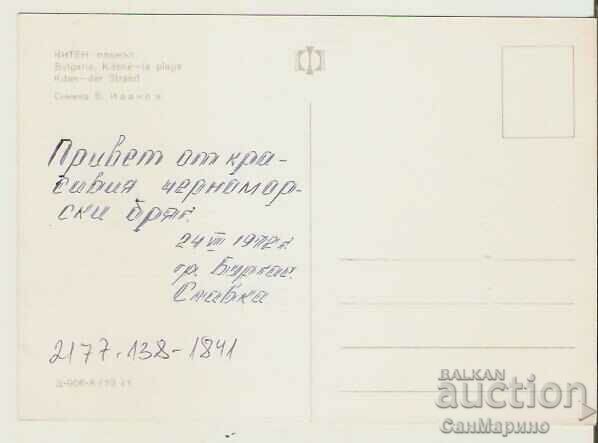 КИТЕН – плажът
Bulgaria, Kitène—la plage
Kiten—der Strand
Снимка В. Иванов
Привет от кра-
сивия черномор-
ски бряг.
24 VII 1972 г.
гр. Бургас.
Славка
2177-138-1841
Д-906-А
BALKAN
auction
СанМарино